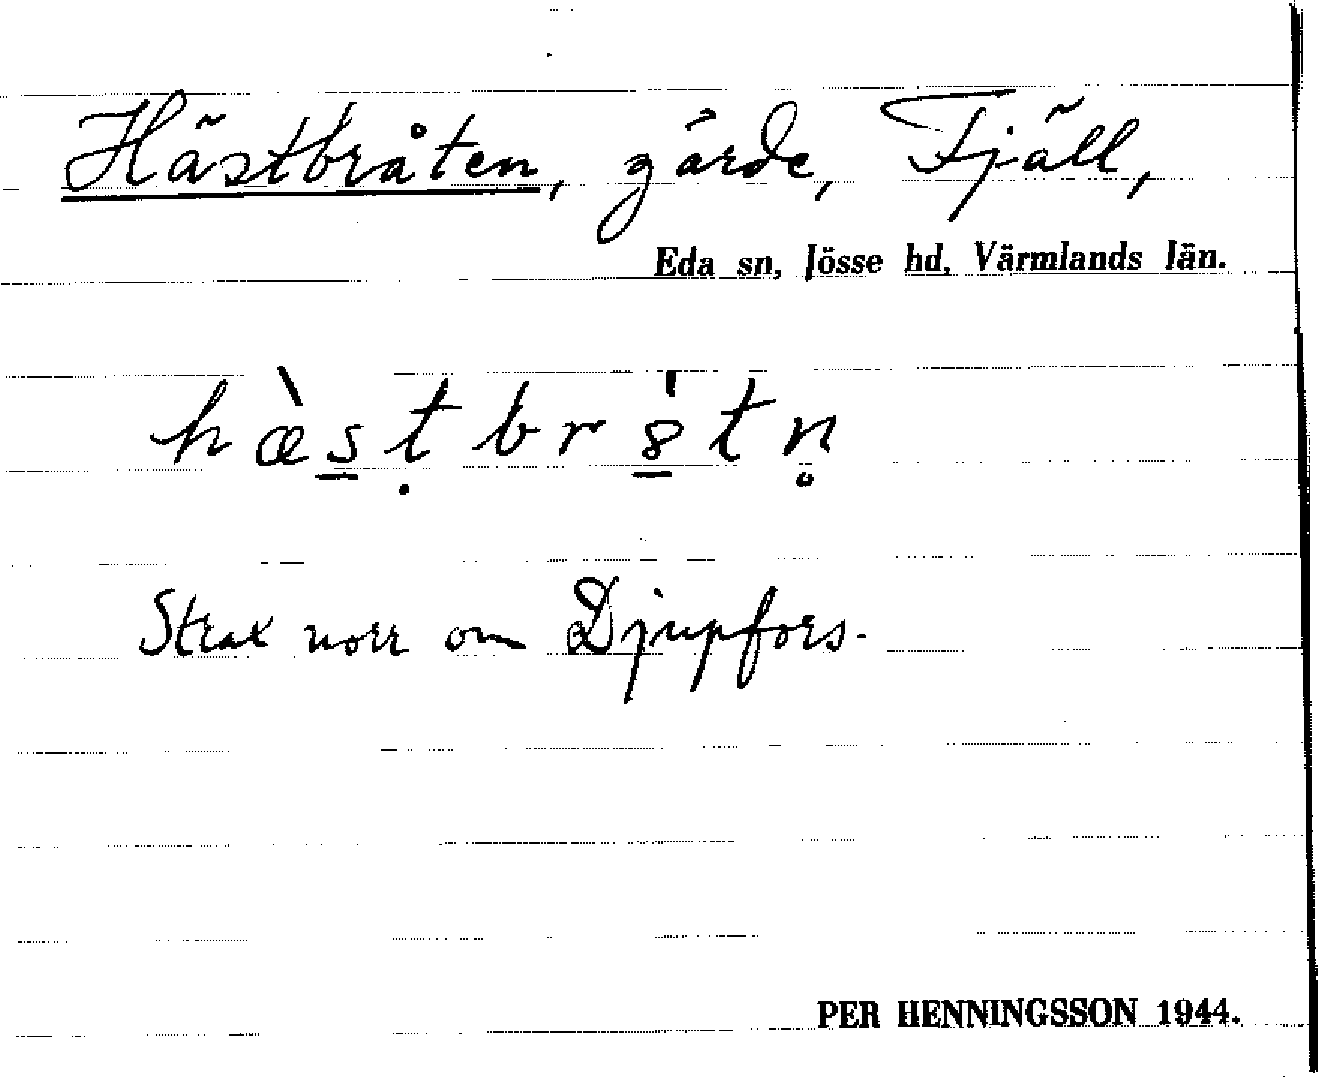 Hästbråten, gärde, Fjäll,
Eda sn, Jösse hd, Värmlands län.
hæ̀s̲ṭbr8̲́tn̥
Strax norr om Djupfors.
PER HENNINGSSON 1944.